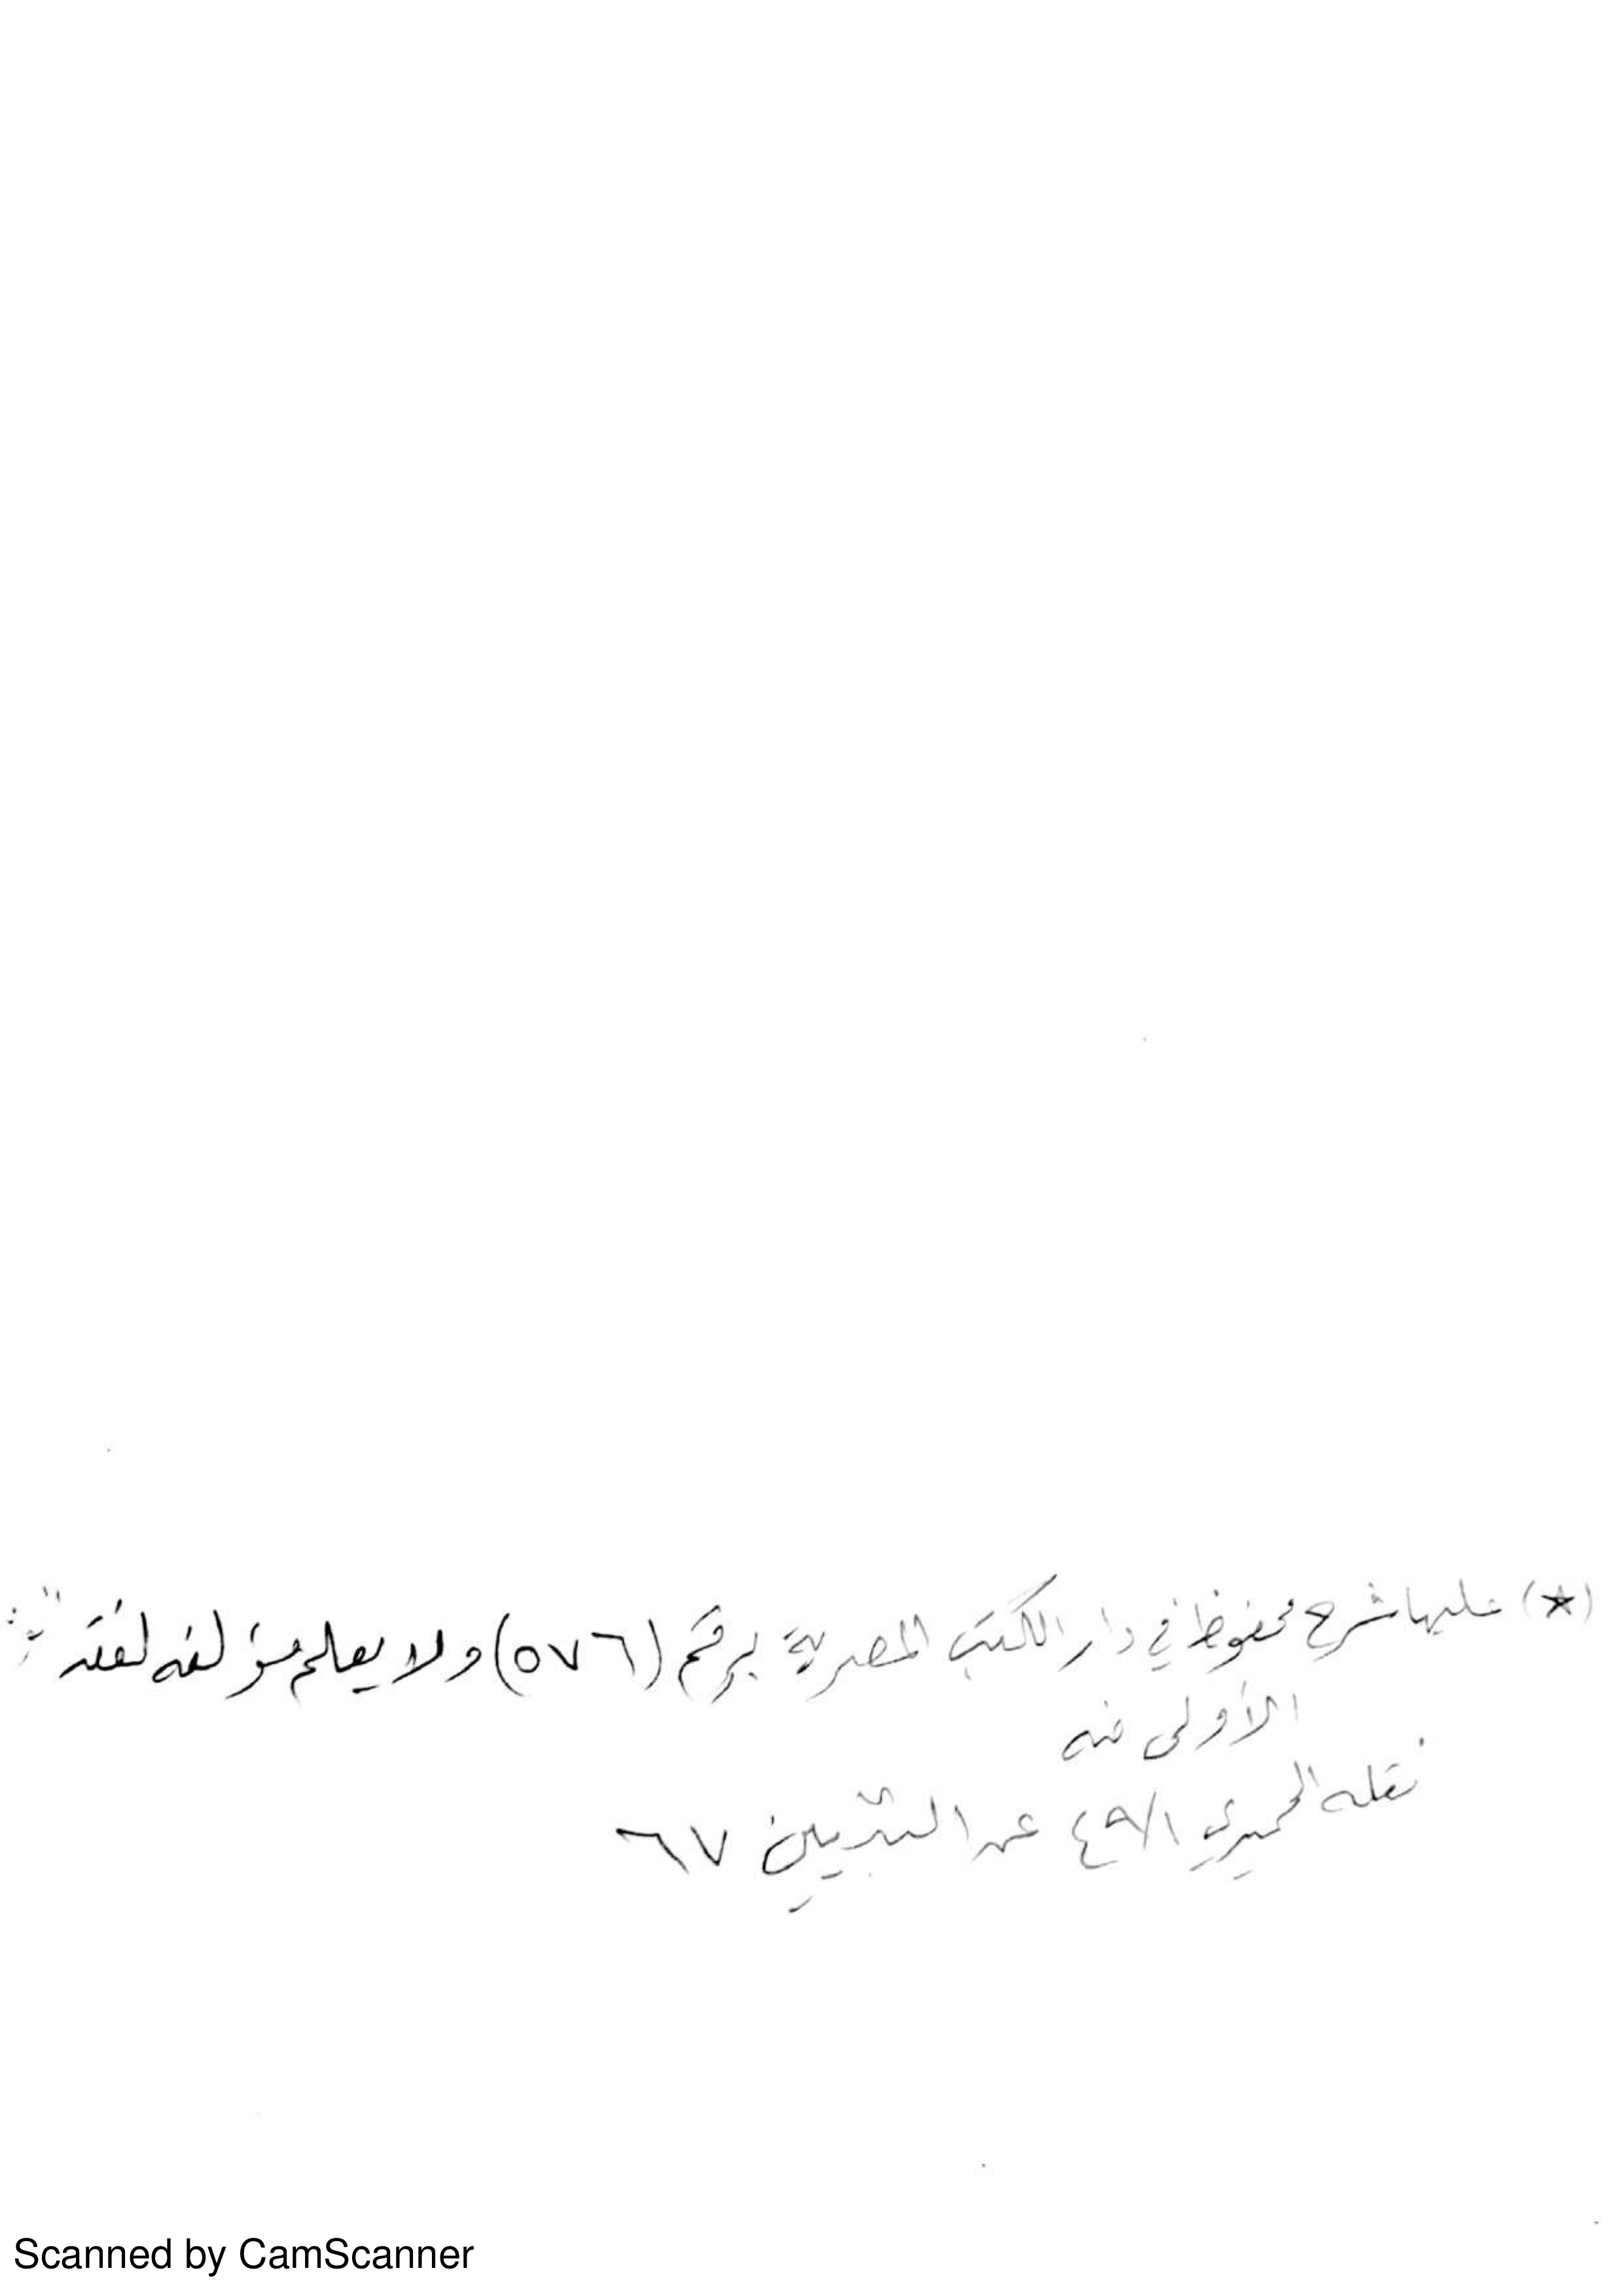 (★) عليها شرح محفوظ في دار الكتب المصرية برقم (٥٧٦) ولا يعلم مؤلفه لفقد
الأولى منه
نقله الحميري ٤٩/١ عن
٦٧
Scanned by CamScanner